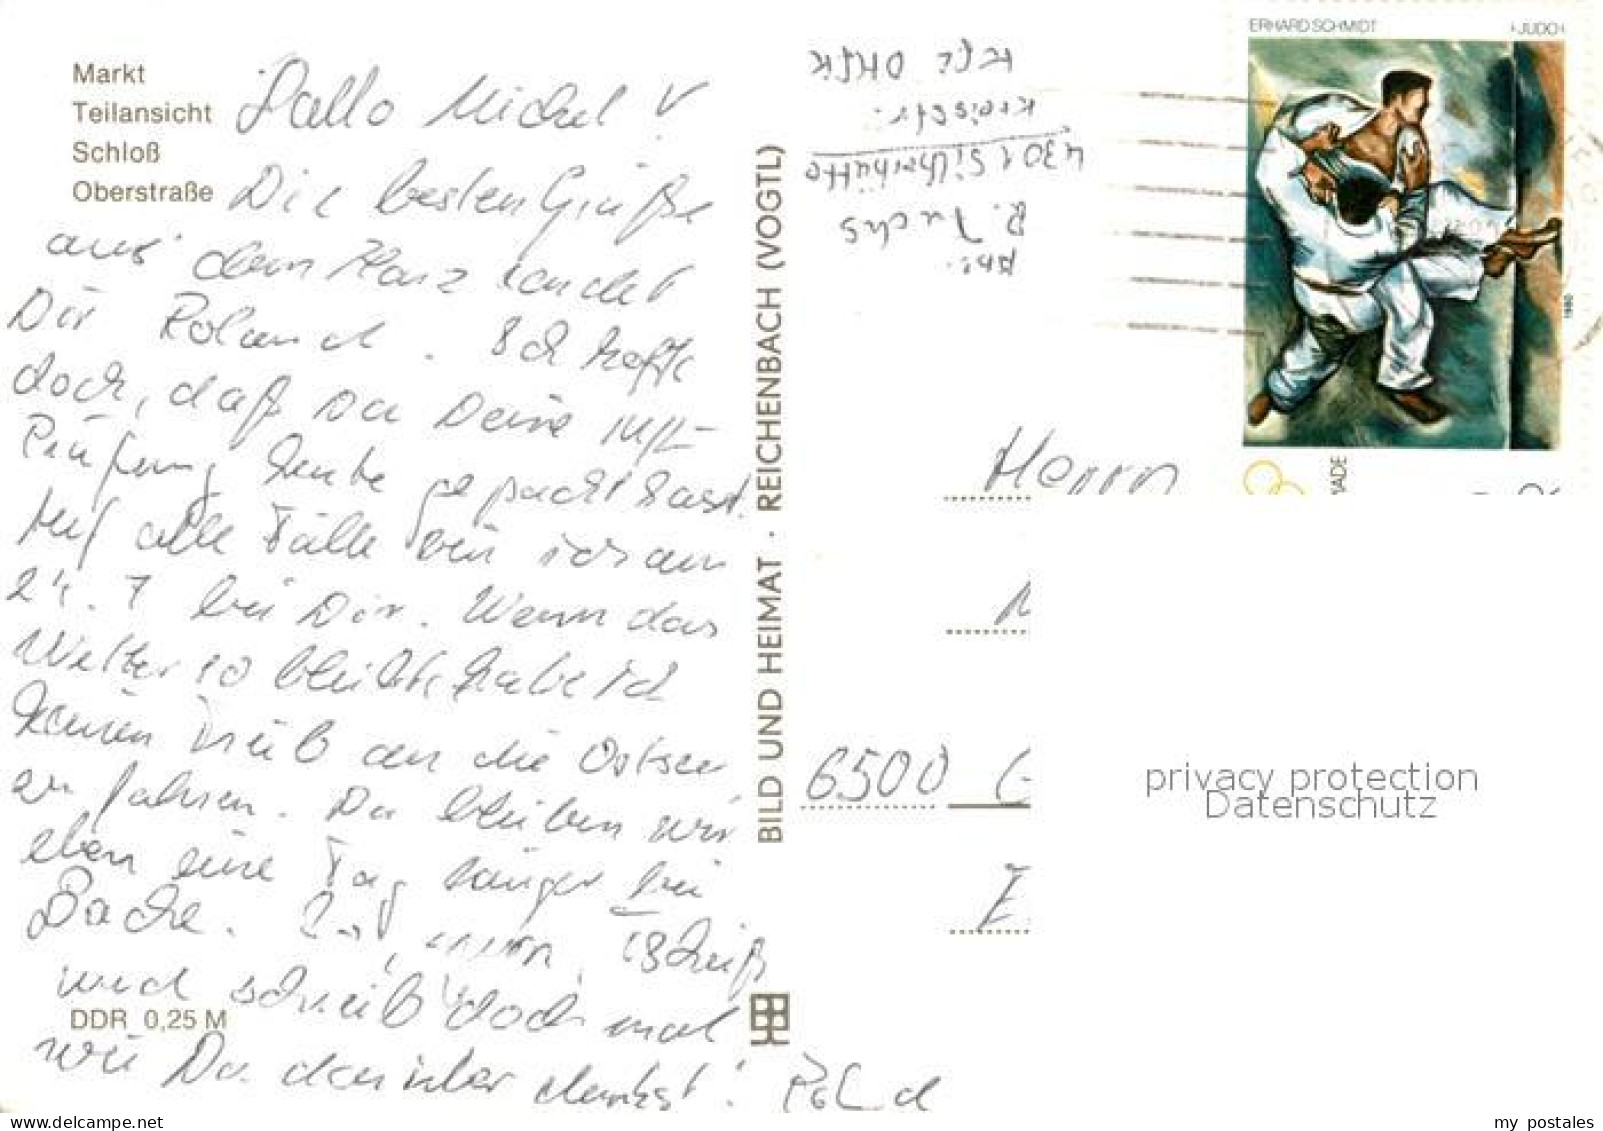 Markt
Teilansicht
Schloß
Oberstraße
Hallo Michel!
Die besten Grüße
aus dem Harz sendet
Dir Roland. Ich hoffe
doch, daß Du Deine
Prüfung heute gepackt hast.
Auf alle Fälle bin ich am
24. 7 bei Dir. Wenn das
Wetter so bleibt, habe ich
keinen Trieb an die Ostsee
zu fahren. Da bleiben wir
eben eine Tag länger bei
Backe.
und schreib doch mal
wie Du darüber denkst! Roland
DDR 0,25 M
BILD UND HEIMAT · REICHENBACH (VOGTL)
Abs.
R. Fuchs
4301 Silberhütte
Kreisstr.
ERHARD SCHMIDT
›JUDO‹
1980
Herrn
6500 G
privacy protection
Datenschutz
my postales